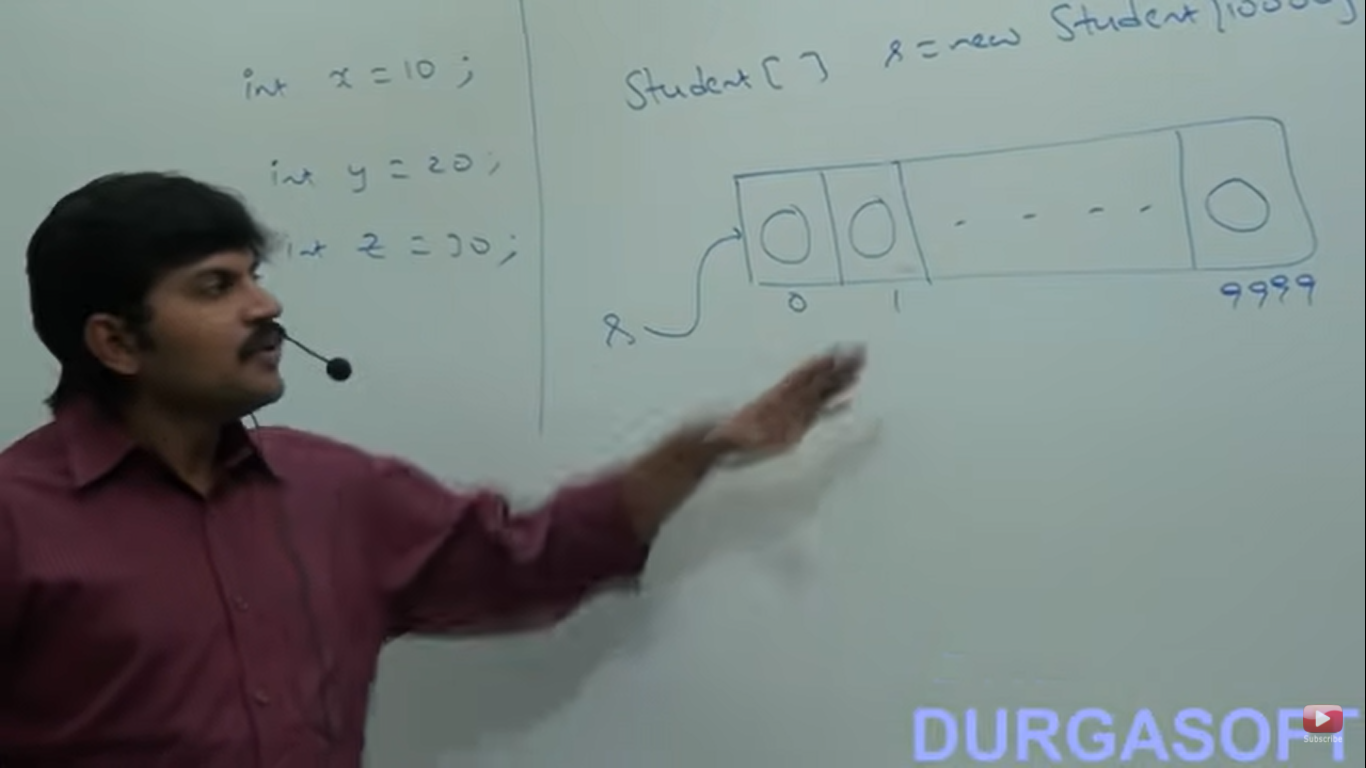 int x = 10 ;
int y = 20 ;
int z = 30 ;
Student [ ] s = new Student [10000]
s
0 1 - - - - 9999
DURGASOFT
Subscribe